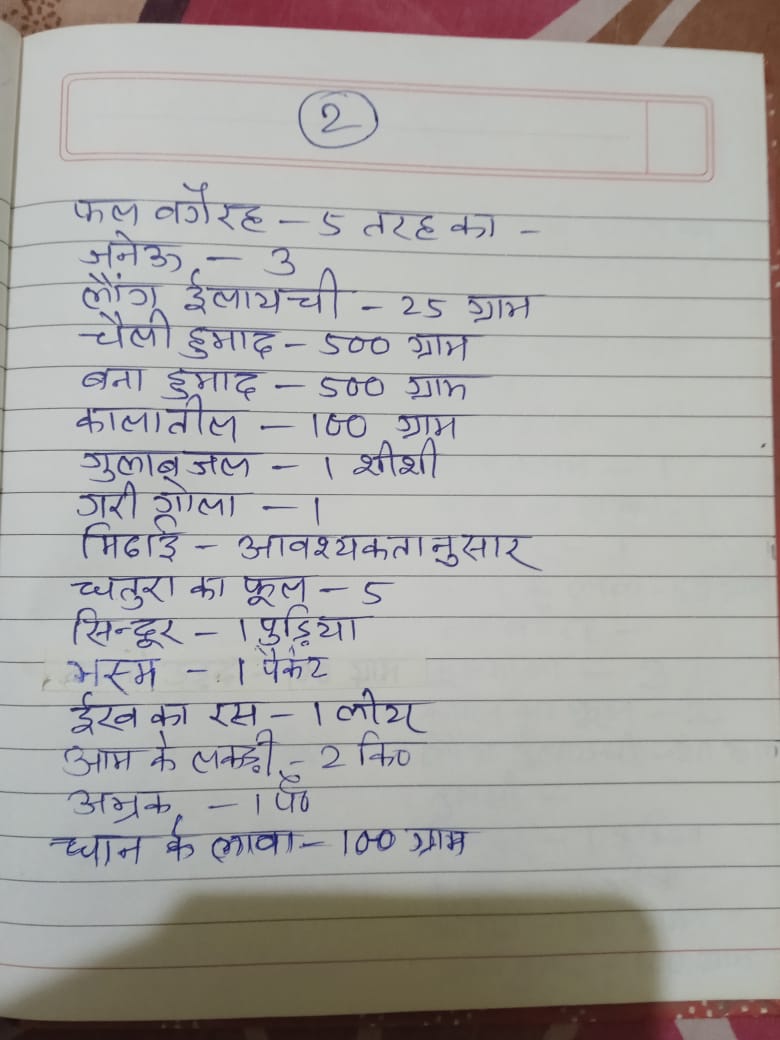 2
फल वगैरह - 5 तरह का -
जनेऊ - 3
लौंग ईलायची - 25 ग्राम
चैली हुमाद - 500 ग्राम
बना हुमाद - 500 ग्राम
कालातील - 100 ग्राम
गुलाब जल - 1 शीशी
गरी गोला - 1
मिठाई - आवश्यकतानुसार
धतुरा का फूल - 5
सिन्दूर - 1 पुड़िया
भस्म - 1 पैकेट
ईख का रस - 1 लीटर
आम के लकड़ी - 2 कि०
अभ्रक - 1 पै०
धान के लावा - 100 ग्राम